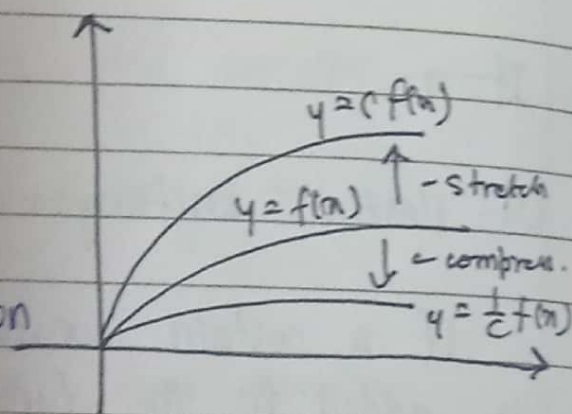 y = c f(x)
- stretch
y = f(x)
- compress.
on
y = 1/c f(x)